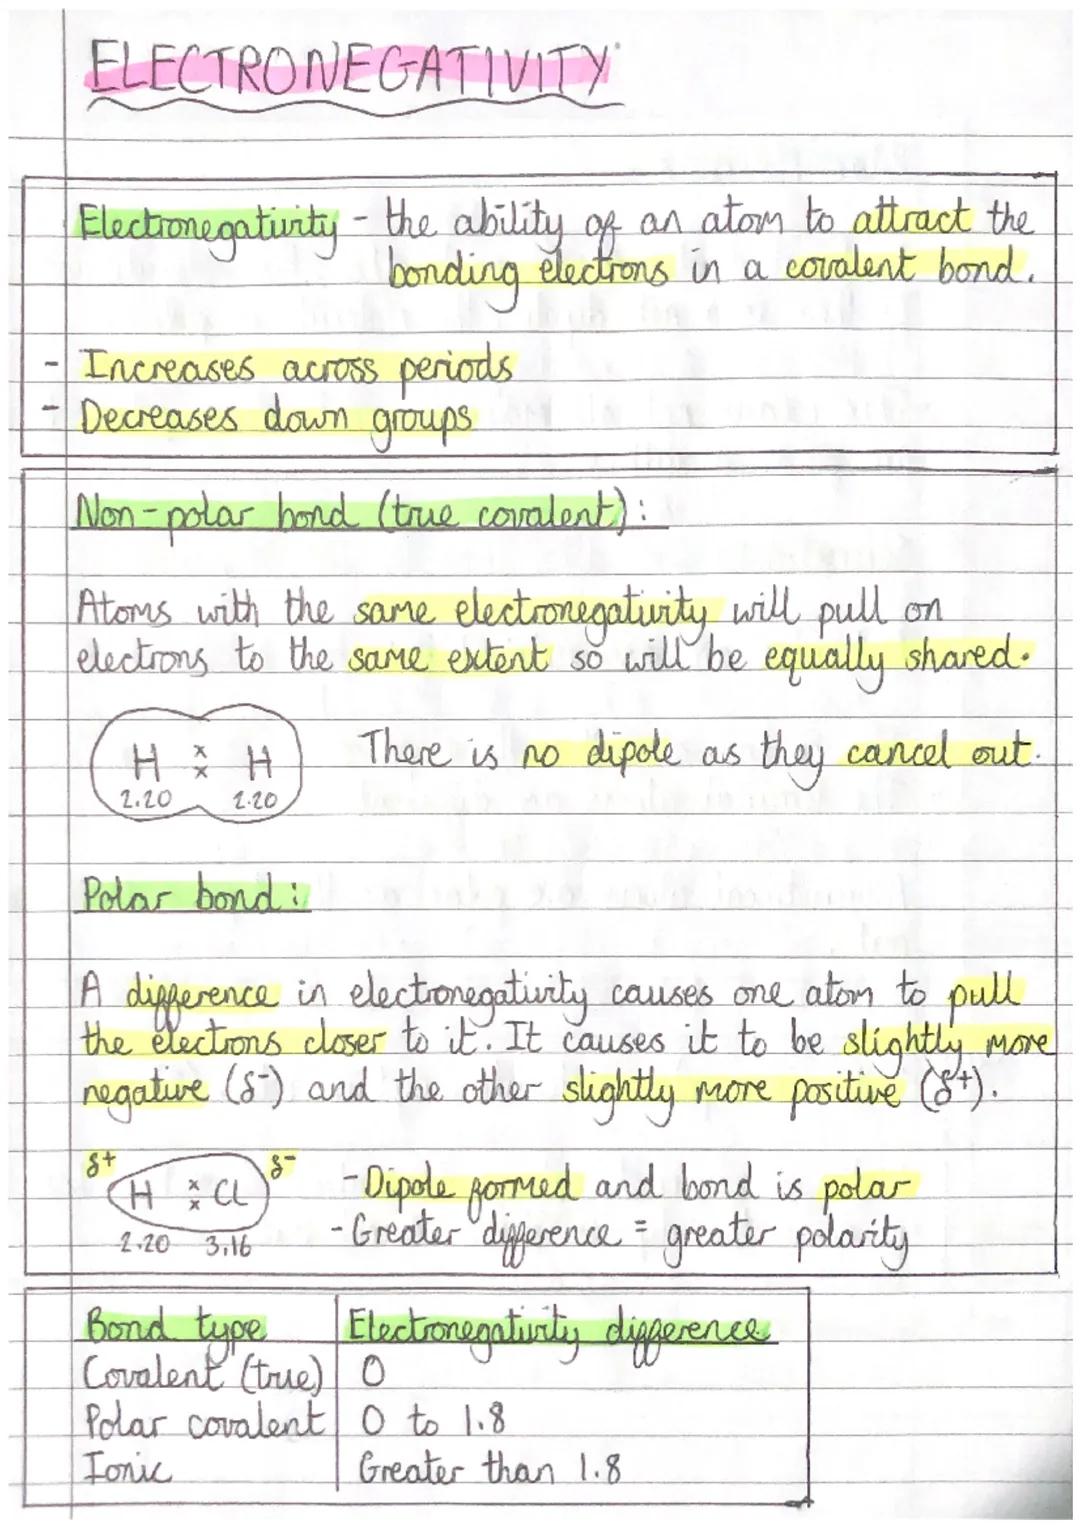 ELECTRONEGATIVITY
Electronegativity - the ability of an atom to attract the
bonding electrons in a covalent bond.
- Increases across periods
- Decreases down groups
Non-polar bond (true covalent):
Atoms with the same electronegativity will pull on
electrons to the same extent so will be equally shared.
H ×× H
2.20 2.20
There is no dipole as they cancel out.
Polar bond:
A difference in electronegativity causes one atom to pull
the electrons closer to it. It causes it to be slightly more
negative (δ-) and the other slightly more positive (δ+).
δ+ H ×× Cl δ-
2.20 3.16
- Dipole formed and bond is polar
- Greater difference = greater polarity
Bond type Electronegativity difference
Covalent (true) 0
Polar covalent 0 to 1.8
Ionic Greater than 1.8